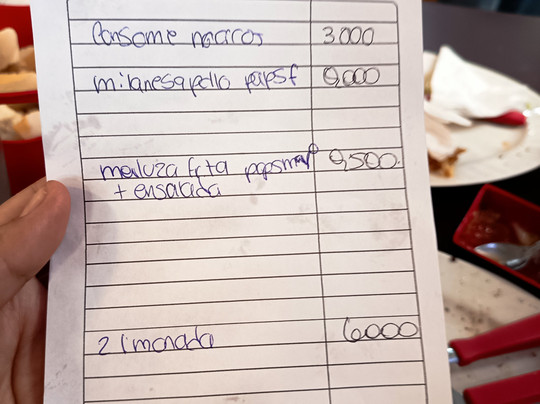 Consome mariscos 3.000
milanesa pollo papasf 9,000
merluza frta papsmayo 9,500.
+ ensalada
2 limonada 6000